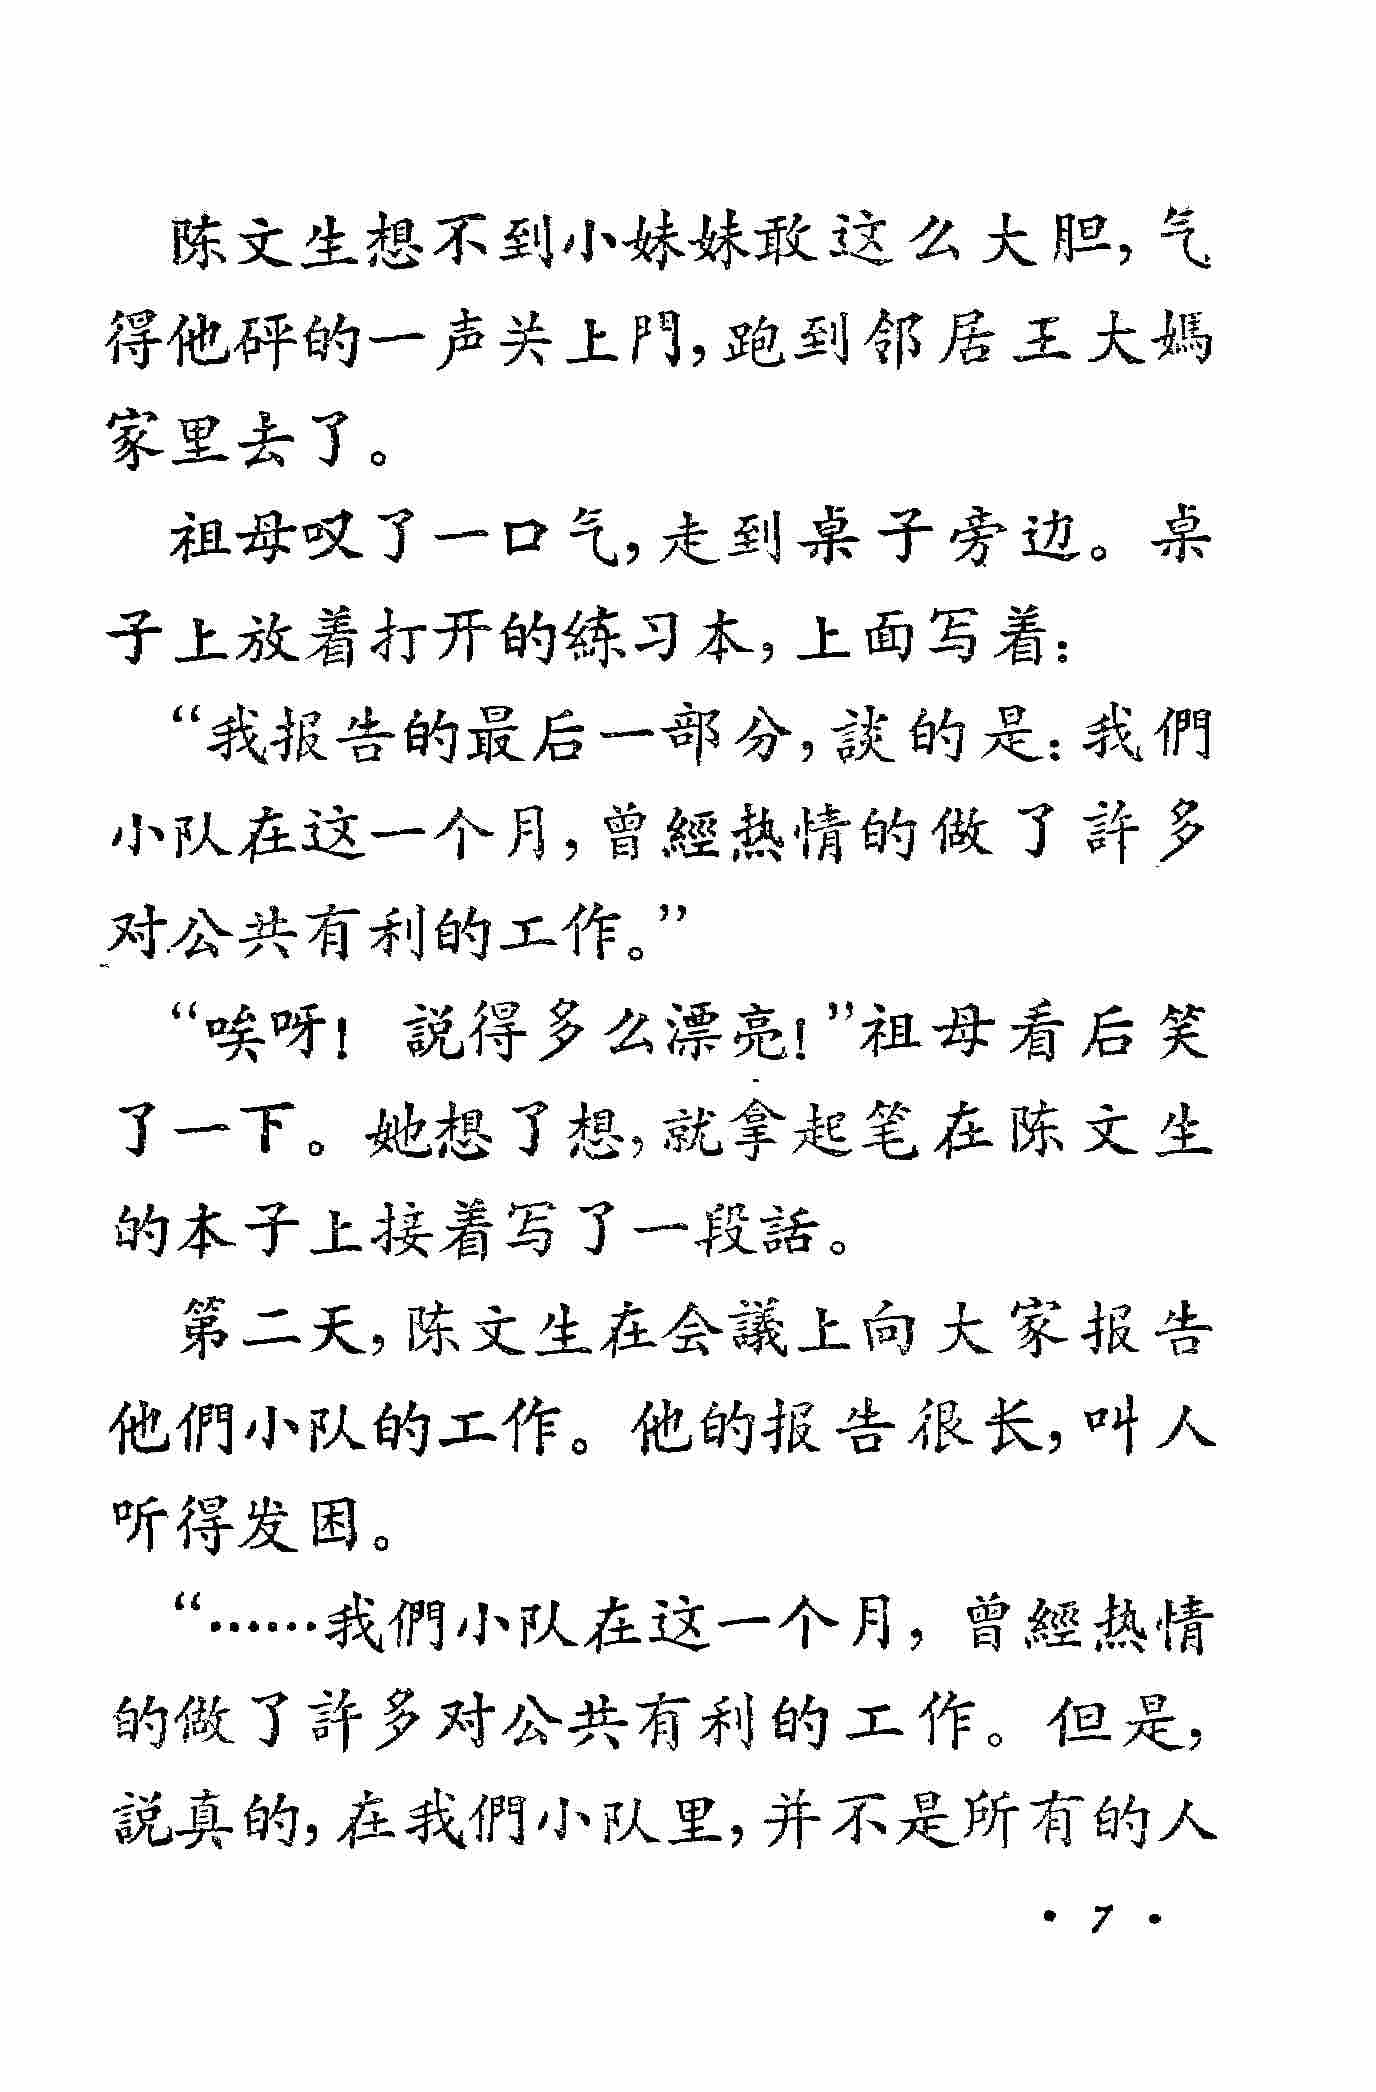 陈文生想不到小妹妹敢这么大胆，气
得他砰的一声关上門，跑到邻居王大媽
家里去了。
祖母叹了一口气，走到桌子旁边。桌
子上放着打开的練习本，上面写着：
“我报告的最后一部分，談的是：我們
小队在这一个月，曾經热情的做了許多
对公共有利的工作。”
“唉呀！說得多么漂亮！”祖母看后笑
了一下。她想了想，就拿起笔在陈文生
的本子上接着写了一段話。
第二天，陈文生在会議上向大家报告
他們小队的工作。他的报告很长，叫人
听得发困。
“……我們小队在这一个月，曾經热情
的做了許多对公共有利的工作。但是，
說真的，在我們小队里，并不是所有的人
· 7 ·